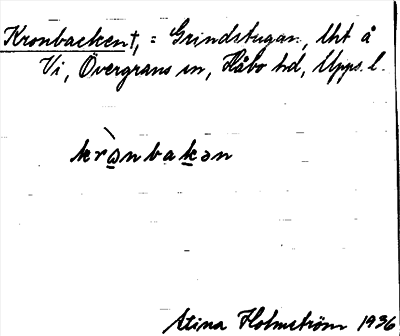 Kronbacken†, = Grindstugan, Uht å
Vi, Övergrans sn, Håbo hd, Upps. l.
krò̠nbak̠ən
Stina Holmström 1936